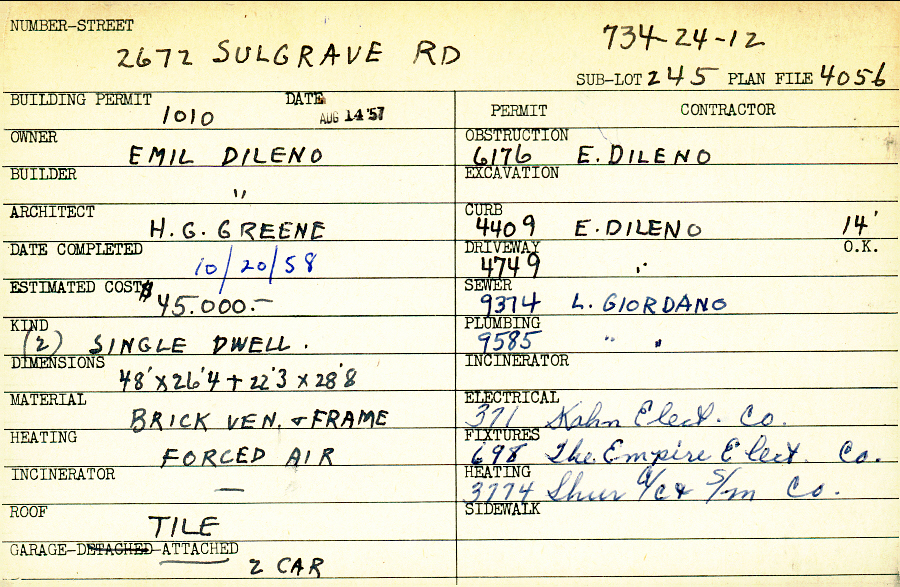 NUMBER-STREET
2672 SULGRAVE RD
734-24-12
SUB-LOT 245 PLAN FILE 4056
BUILDING PERMIT DATE
1010 AUG 14 '57
OWNER
EMIL DILENO
BUILDER
"
ARCHITECT
H. G. GREENE
DATE COMPLETED
10/20/58
ESTIMATED COST $
45.000.-
KIND
(2) SINGLE DWELL.
DIMENSIONS
48' X 26'4 + 22'3 X 28'8
MATERIAL
BRICK VEN. & FRAME
HEATING
FORCED AIR
INCINERATOR
—
ROOF
TILE
GARAGE-DETACHED-ATTACHED
2 CAR
PERMIT CONTRACTOR
OBSTRUCTION
6176 E. DILENO
EXCAVATION
CURB
4409 E. DILENO 14'
DRIVEWAY O.K.
4749 "
SEWER
9374 L. GIORDANO
PLUMBING
9585 " "
INCINERATOR
ELECTRICAL
371 Kahn Elect. Co.
FIXTURES
698 The Empire Elect. Co.
HEATING
3774 Shur A/C & S/m Co.
SIDEWALK